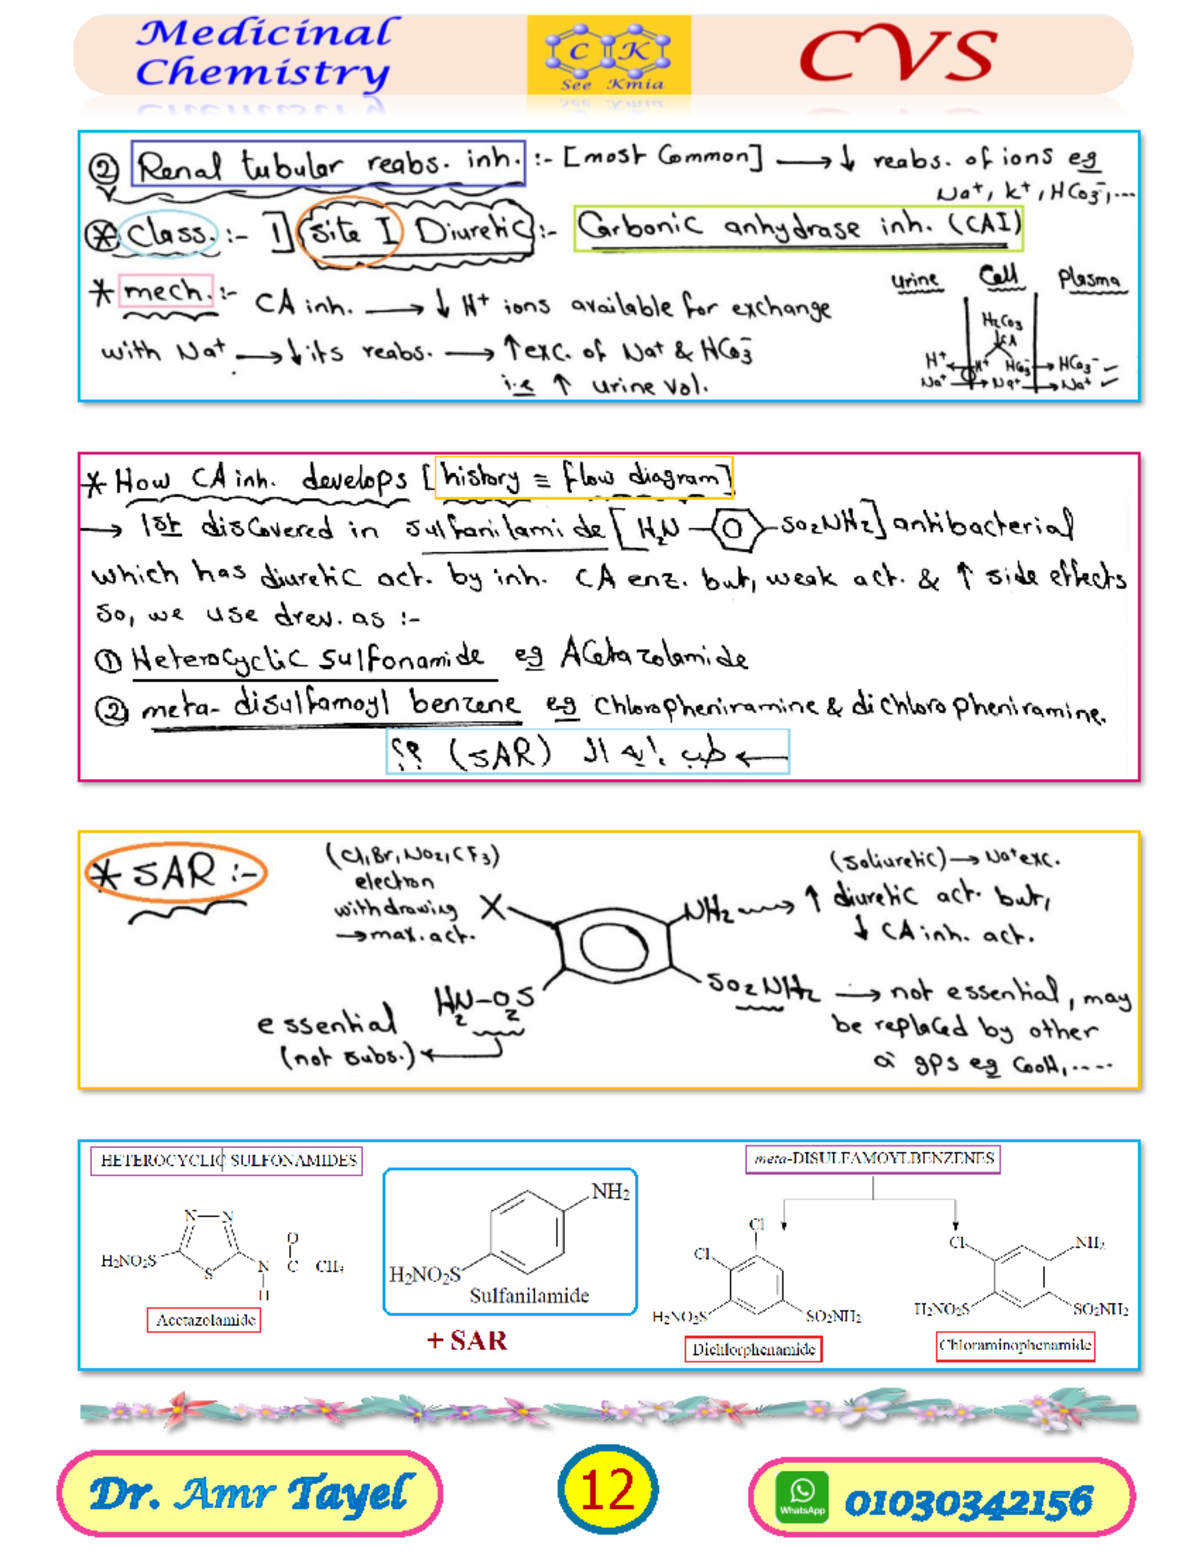 Medicinal
Chemistry
C K
See Kmia
CVS
② Renal tubular reabs. inh. :- [most Common] → ↓ reabs. of ions eg
Na⁺, K⁺, HCO₃⁻, ...
* Class. :- 1] Site I Diuretic :- Carbonic anhydrase inh. (CAI)
* mech. :- CA inh. → ↓ H⁺ ions available for exchange
with Na⁺ → ↓ its reabs. → ↑ exc. of Na⁺ & HCO₃⁻
i.e ↑ urine vol.
urine Cell Plasma
H₂CO₃
CA
H⁺ ← H⁺ HCO₃⁻ → HCO₃⁻
Na⁺ → Na⁺ → Na⁺
* How CA inh. develops [history ≡ flow diagram]
→ 1st discovered in sulfanilamide [H₂N- -SO₂NH₂] antibacterial
which has diuretic act. by inh. CA enz. but, weak act. & ↑ side effects
so, we use drev. as :-
① Heterocyclic sulfonamide eg Acetazolamide
② meta-disulfamoyl benzene eg Chloropheniramine & dichloropheniramine.
← طب ايه ال (SAR) ؟؟
* SAR :-
(Cl, Br, NO₂, CF₃)
electron
withdrawing X
→ max. act.
(saliuretic) → Na⁺ exc.
NH₂ → ↑ diuretic act. but,
↓ CA inh. act.
H₂N-O₂S
essential
(not subs.) ←
SO₂NH₂ → not essential, may
be replaced by other
a gps eg COOH, ....
HETEROCYCLIC SULFONAMIDES
N N
H2NO2S S N C CH3
O
H
Acetazolamide
NH2
H2NO2S
Sulfanilamide
+ SAR
meta-DISULFAMOYLBENZENES
Cl
Cl
H2NO2S SO2NH2
Dichlorphenamide
Cl NH2
H2NO2S SO2NH2
Chloraminophenamide
Dr. Amr Tayel
12
WhatsApp
01030342156